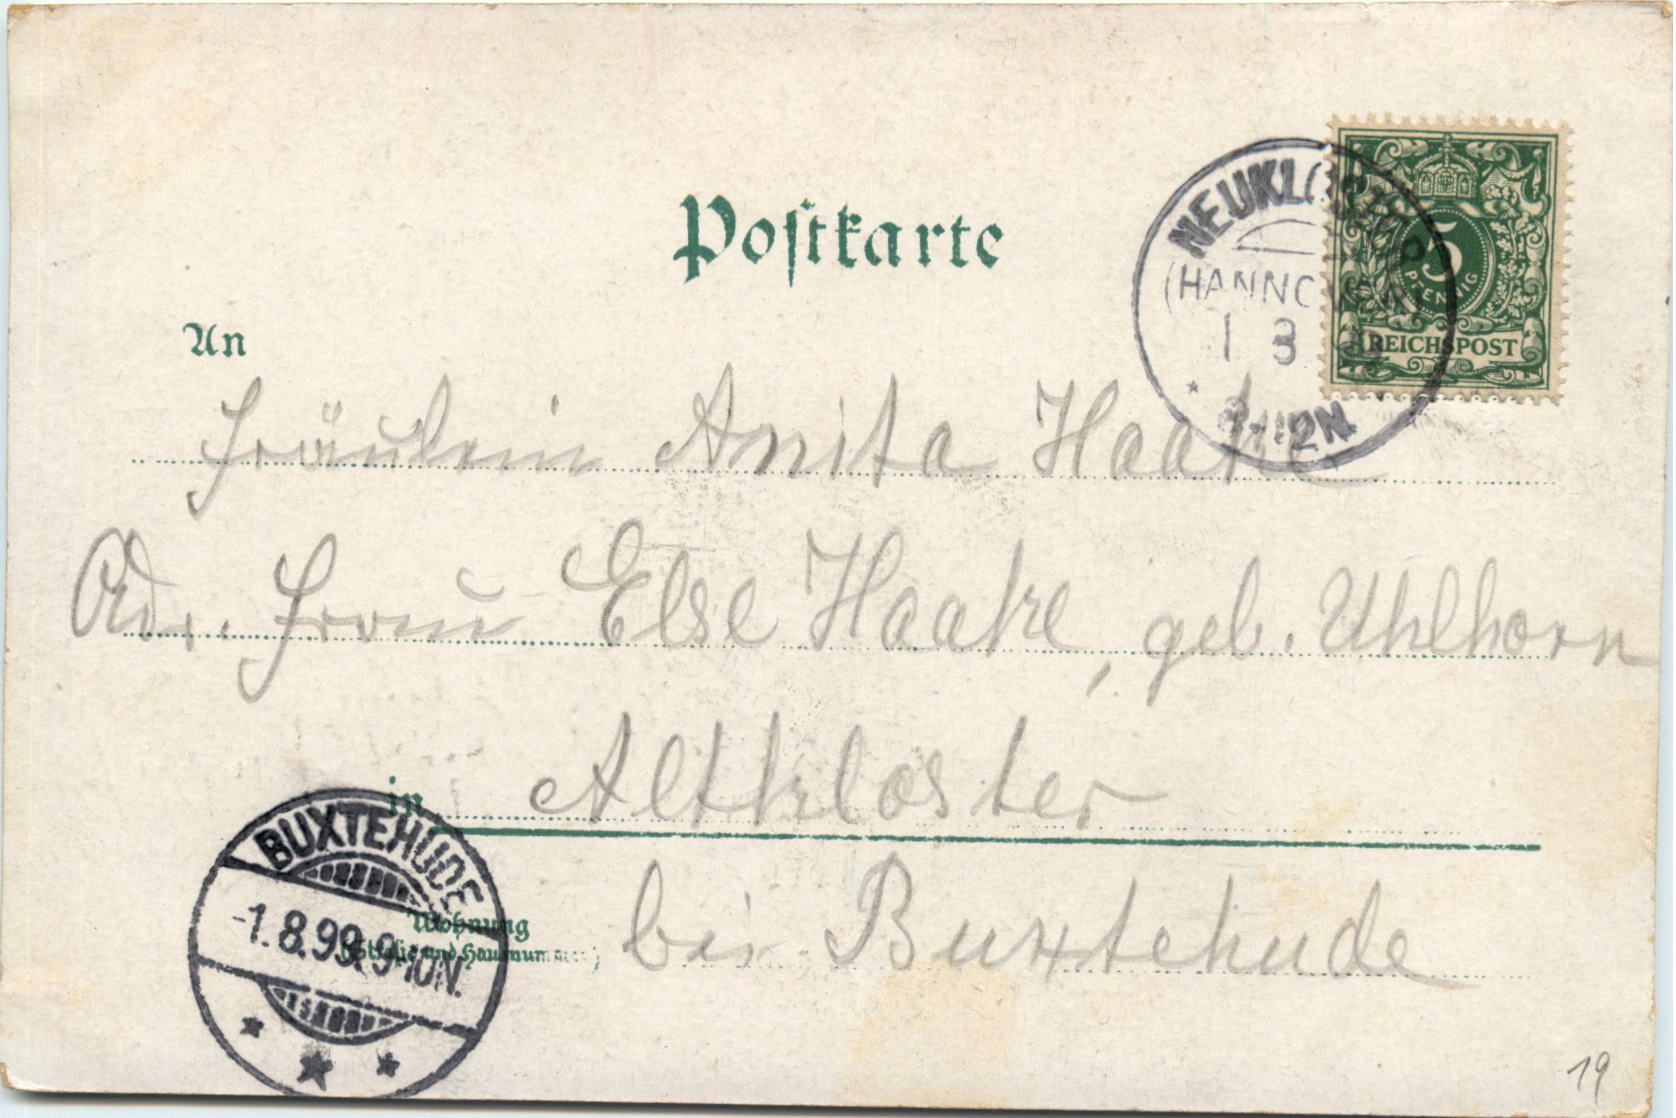 Postkarte
An
NEUKLOSTER
(HANNOVER)
1 8
8-12N.
5
PFENNIG
REICHSPOST
Fräulein Anita Haake
Adr. Frau Else Haake, geb. Uhlhorn
in Altkloster
bei Buxtehude
BUXTEHUDE
-1.8.99.9-10N.
Wohnung
(Straße und Hausnummer)
19